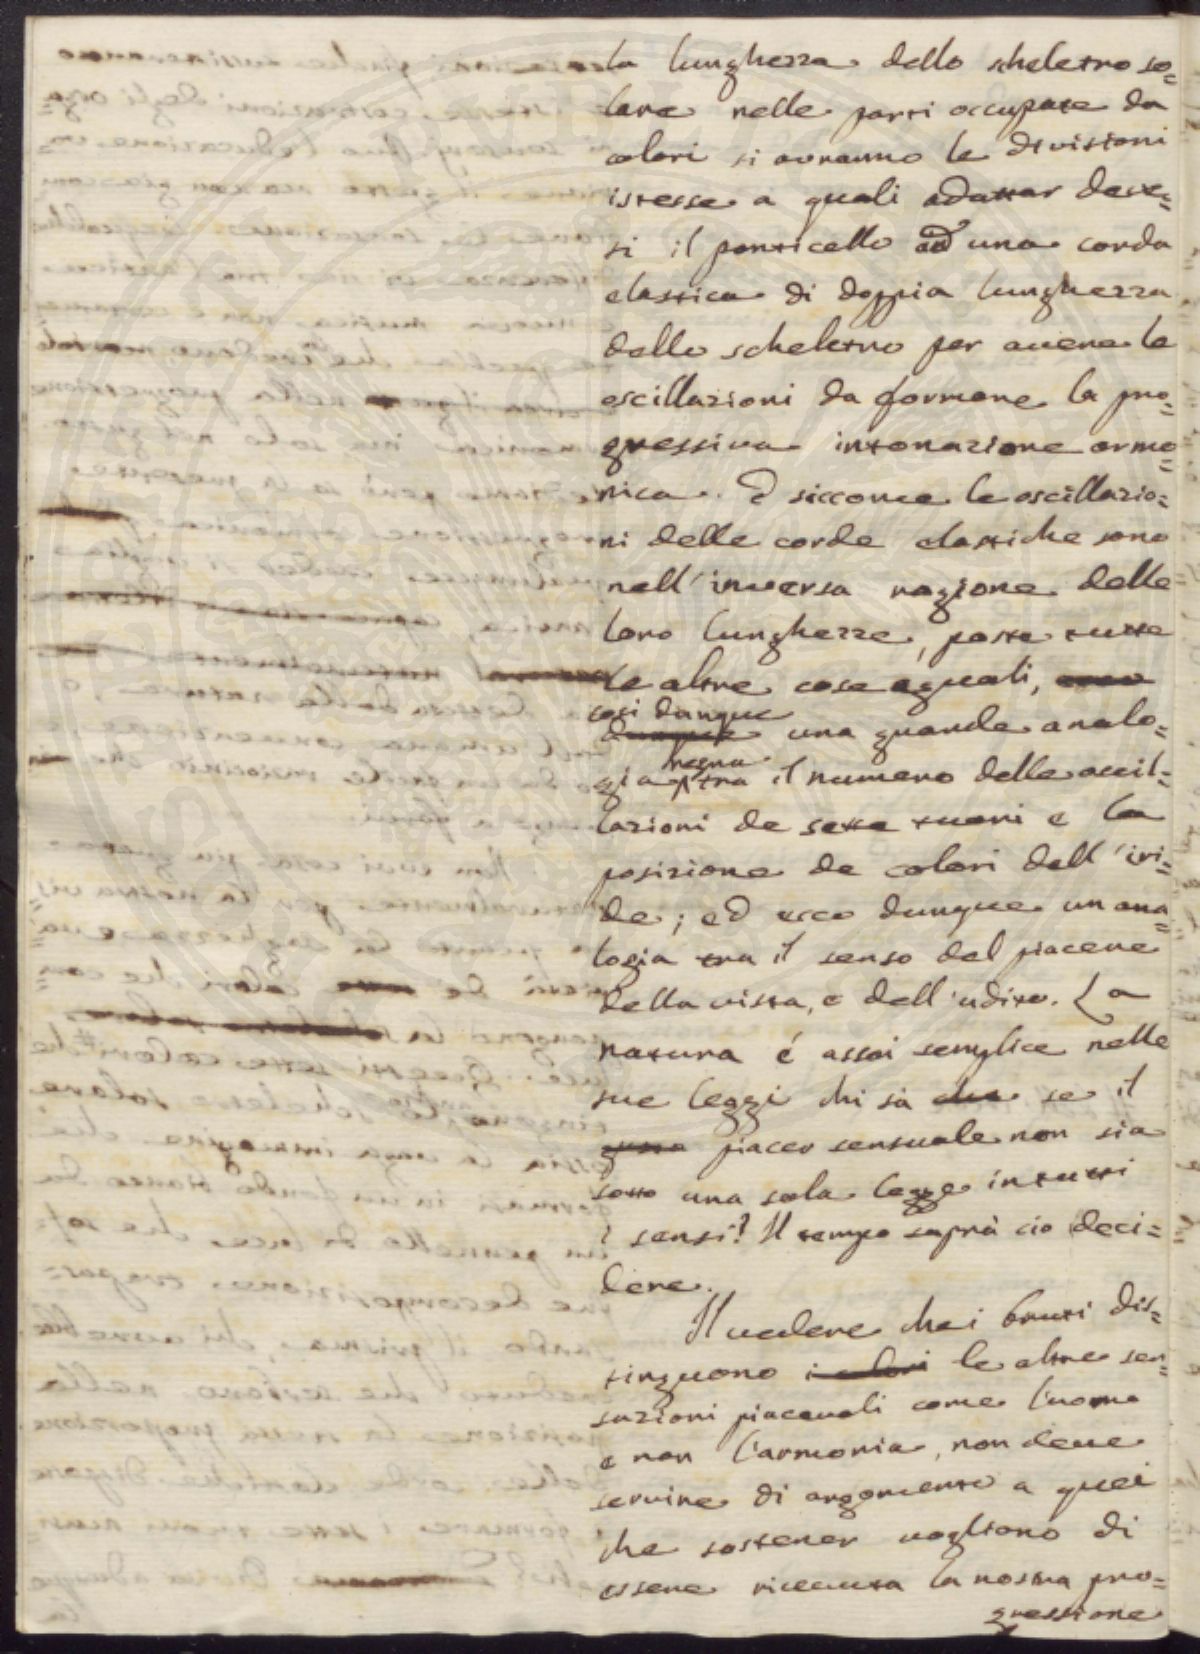 la lunghezza dello scheletro so=
lare nelle parti occupate da
colori si avranno le divisioni
istesse a quali adattar deve=
si il ponticello ad una corda
elastica di doppia lunghezza
dello scheletro per avere le
oscillazioni da formare la pro=
gressiva intonazione armo=
nica. E siccome le oscillazio=
ni delle corde elastiche sono
nell'inversa ragione delle
loro lunghezze, poste tutte
le altre cose eguali,
così dunque
dunque una grande analo=
regna
gia tra il numero delle oscil=
lazioni de sette tuoni e la
posizione de colori dell'iri=
de; ed ecco dunque un ana=
logia tra il senso del piacere
della vista, e dell'udito. La
natura é assai semplice nelle
sue leggi chi sà che se il
piacer sensuale non sia
sotto una sola legge in tutti
i sensi? Il tempo saprà cio deci=
dere.
Il vedere che i bruti dis=
tinguono i colori le altre sen=
sazioni piacevoli come l'uomo
e non l'armonia, non deve
servire di argomento a quei
che sostener vogliono di
essere ricevuta la nostra pro=
gressione